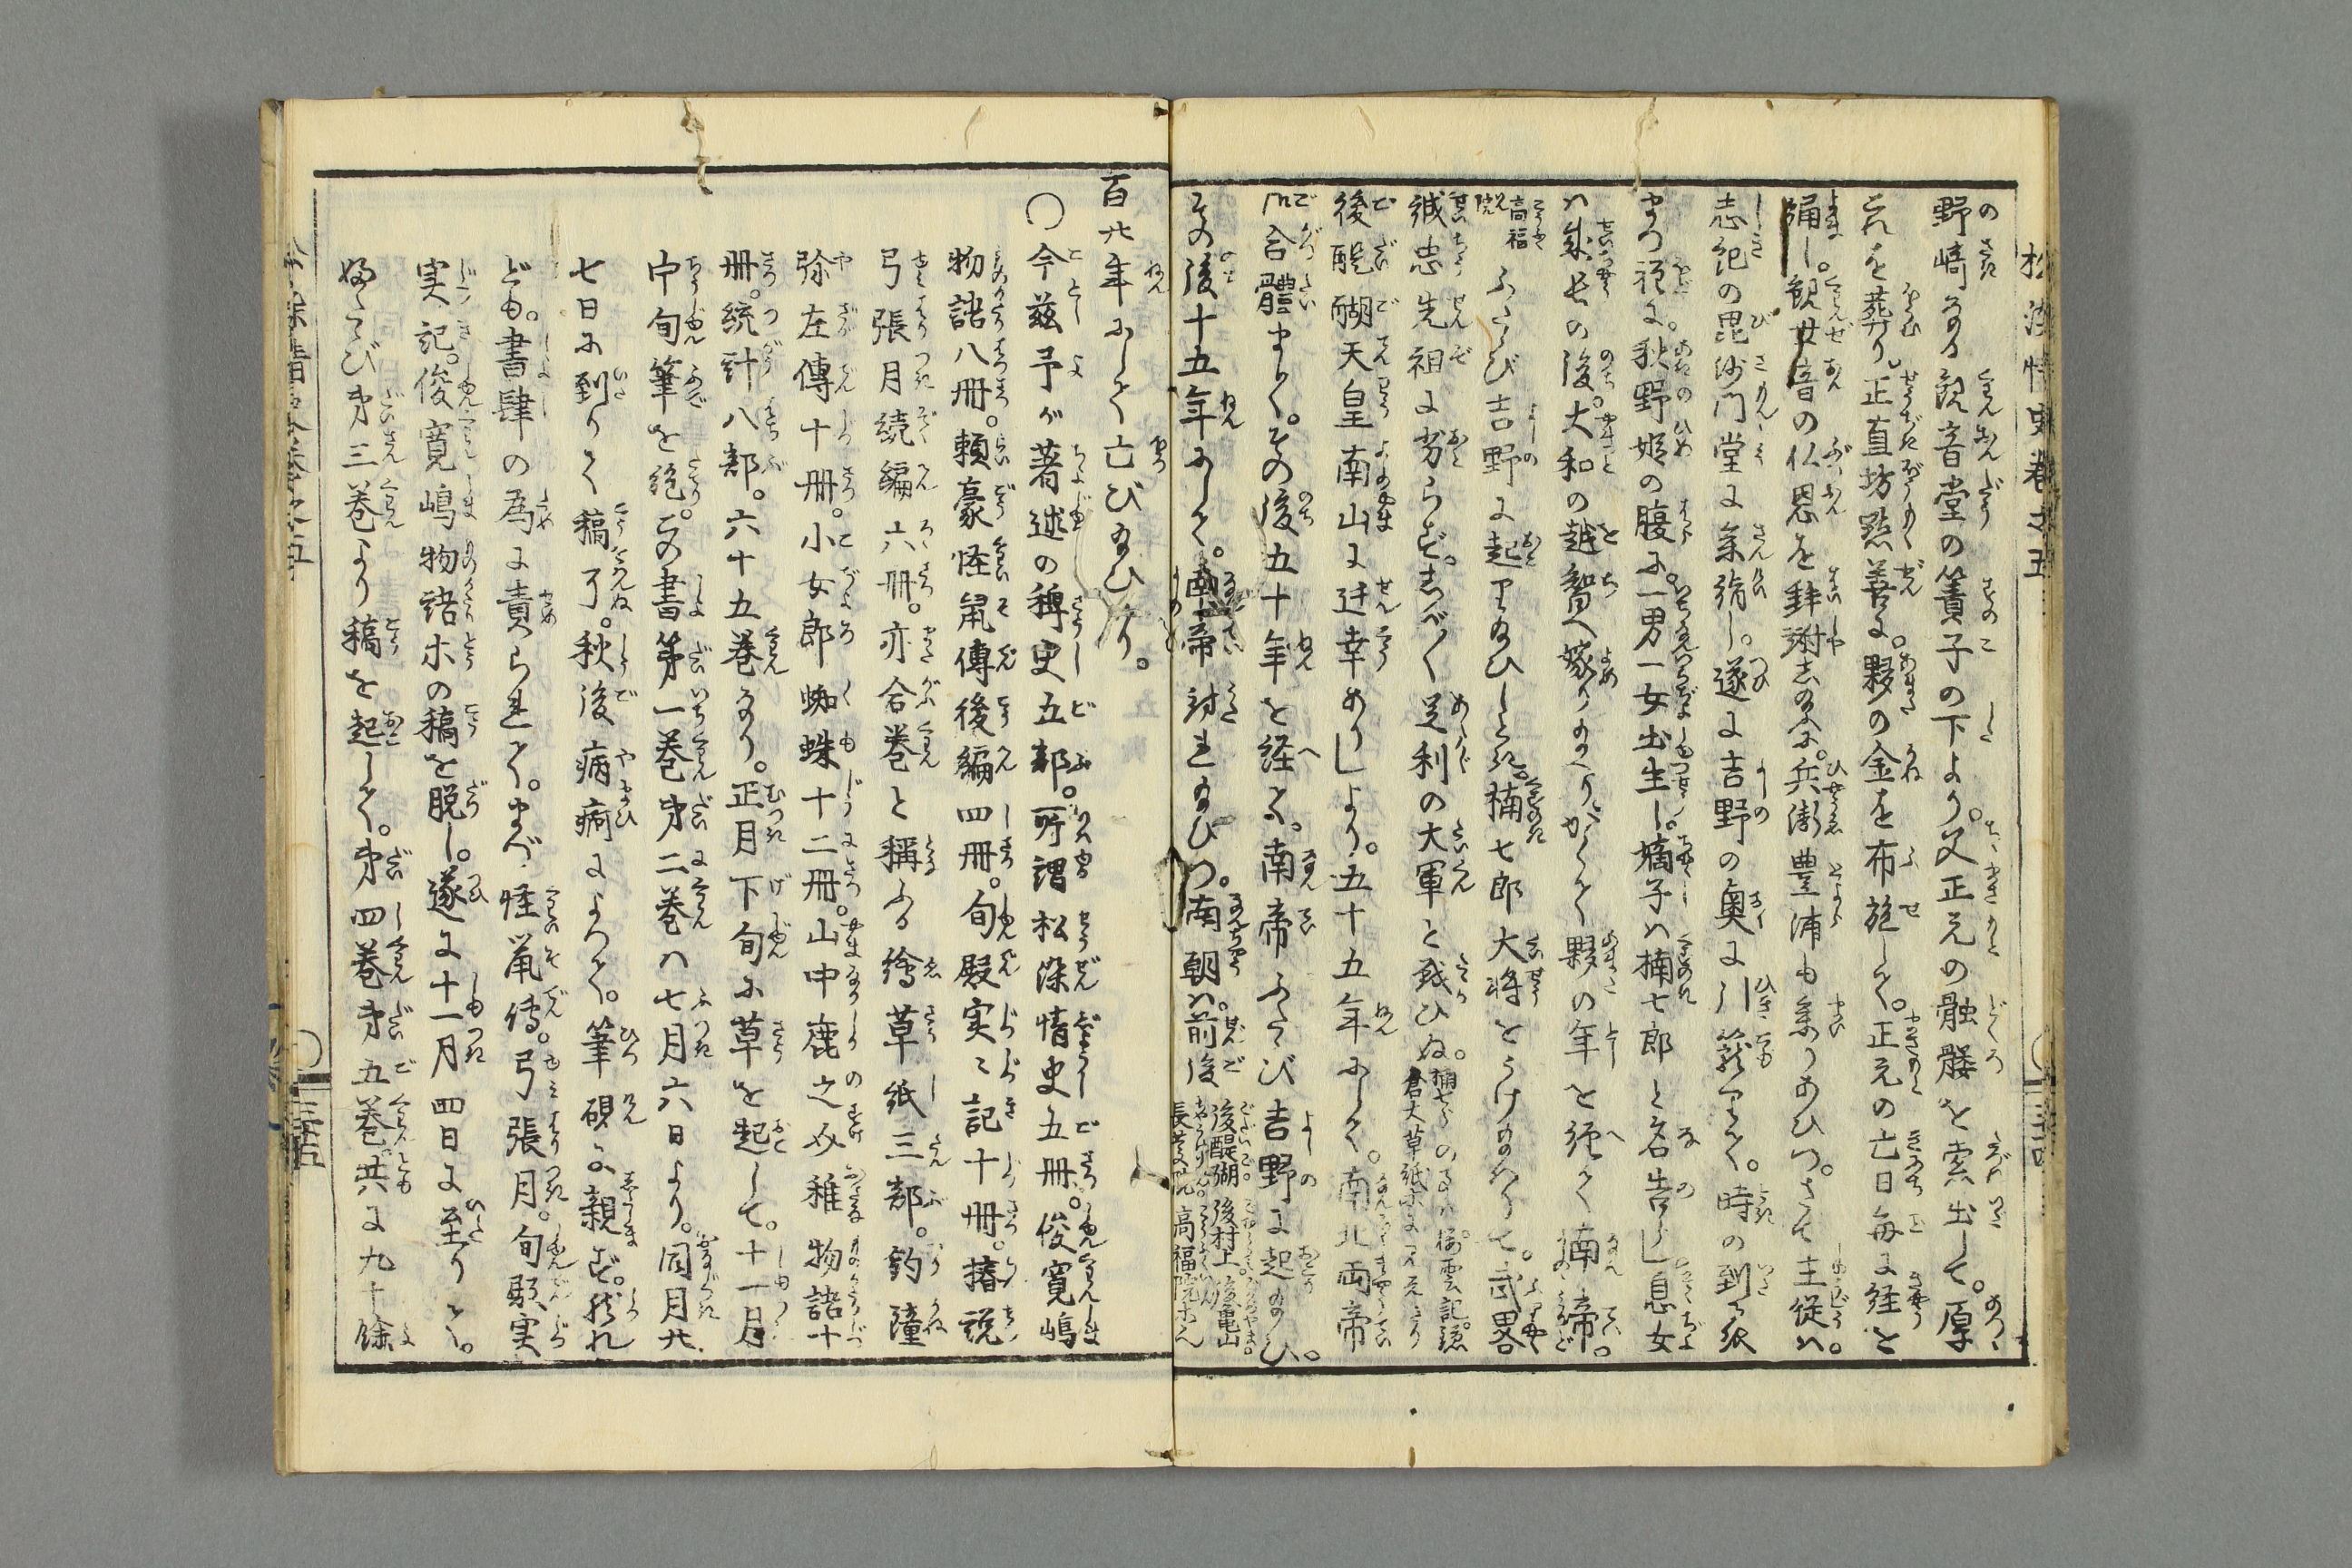 松染情史巻之五
三十四
野﨑なる観音堂の簀子の下より。又正元の髑髏を索出して。厚
これを葬り。正直坊黙善に。夥の金を布施して。正元の亡日毎に経を
誦し。観世音の仏恩を拜謝し給ふに。兵衛豊浦も参りあひつ。さて主従は。
志紀の毘沙門堂に参詣し。遂に吉野の奥に引籠りて。時の到るを
まつ程に。秋野姫の腹に。一男一女出生し。嫡子は楠七郎と名告らし。息女
は成長の後。大和の越智へ嫁り給へり。かくて夥の年を経て南帝。
高福院 ふたゝび吉野に起り給ひしとき。楠七郎大将をうけ給はりて。武畧
誠忠先祖に劣らず。しば〳〵足利の大軍と戦ひぬ。
後醍醐天皇南山に迁幸ありしより。五十五年にして。南北両帝
御合體まし〳〵。その後五十年を経て。南帝ふたゝび吉野に起給ひ。
その後十五年にして。南帝討れ給ひつ。南朝は。前後 後醍醐 後村上 後亀山 長慶院 高福院
百廿年にして亡び給ひけり。
○今茲予が著述の稗史五部。所謂松染情史五冊。俊寛嶋
物語八冊。頼豪怪鼠傳後編四冊。旬殿実々記十冊。括頭説
弓張月続編六冊。亦合巻と稱ふる繪草紙三部。釣鐘
弥左傳十冊。小女郎蜘蛛十二冊。山中鹿之助稚物語十
冊。統計八部。六十五巻なり。正月下旬に草を起して。十一月
中旬筆を絶。この書第一巻第二巻は七月六日より。同月廿
七日に到りて稿了。秋後病痾によつて。筆硯に親まず。然れ
ども。書肆の為に責られて。まづ怪鼠傳。弓張月。旬殿実
実記。俊寛嶋物語ホの稿を脱し。遂に十一月四日に至りて。
ふたゝび第三巻より稿を起して。第四巻第五巻。共に九十餘
松染情史巻之五
三十五